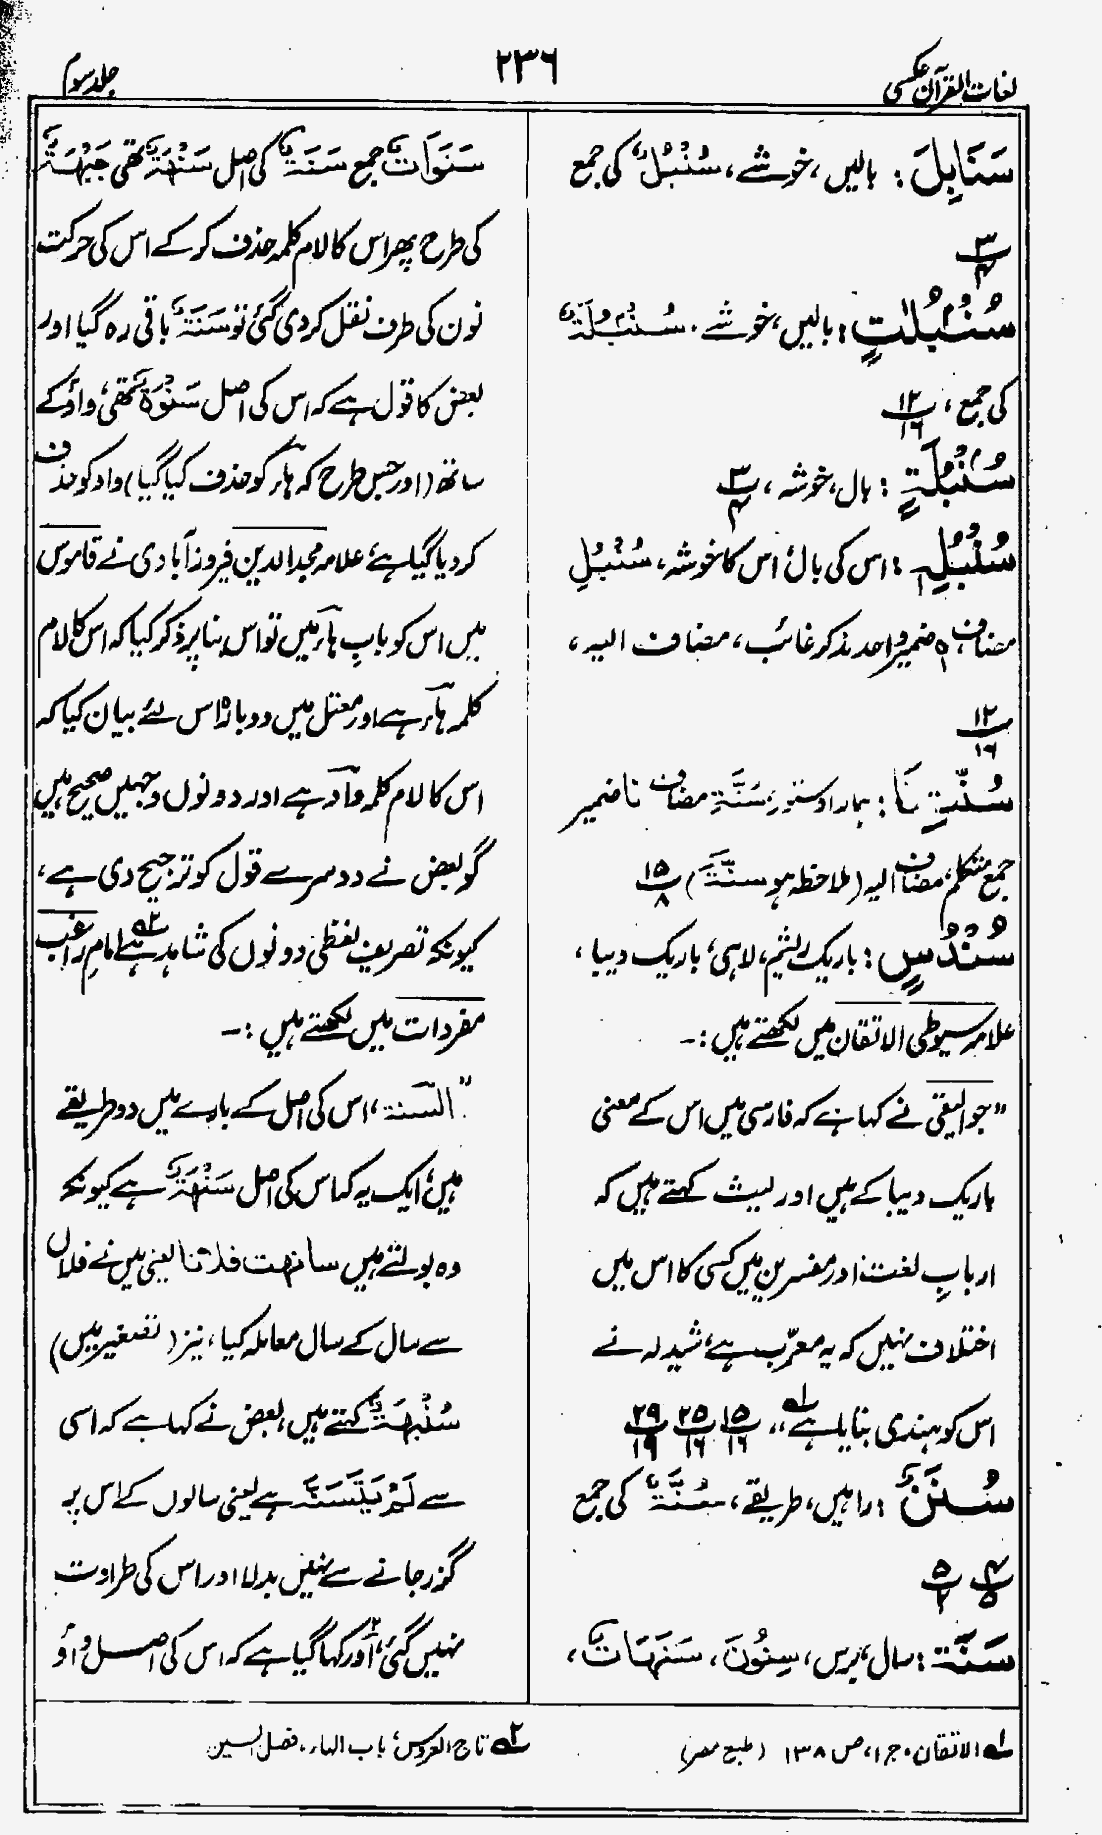 لغات القرآن عکسی
۲۳۶
جلد سوم
سَنَابِلَ : بالیں، خوشے، سُنْبُلٌ کی جمع
۳ / ۴
سُنْبُلٰتٍ : بالیں، خوشے، سُنْبُلَۃٌ
کی جمع، ۱۲ / ۱۶
سُنْبُلَۃٍ : بال، خوشہ، ۳ / ۴
سُنْبُلِہٖ : اس کی بال، اس کا خوشہ، سُنْبُلِ
مضاف ہٖ ضمیر واحد مذکر غائب، مضاف الیہ،
۱۲ / ۱۶
سُنَّتِنَا : ہمارا دستور، سُنَّۃِ مضاف نا ضمیر
جمع متکلم، مضاف الیہ (ملاحظہ ہو سنۃ) ۱۵ / ۸
سُنْدُسٍ : باریک ریشم، لاہی، باریک دیبا،
علامہ سیوطی الاتقان میں لکھتے ہیں :۔
"جوالیقی نے کہا ہے کہ فارسی میں اس کے معنی
باریک دیبا کے ہیں اور لیث کہتے ہیں کہ
ارباب لغت اور مفسرین میں کسی کا اس میں
اختلاف نہیں کہ یہ معرّب ہے، شیدلہ نے
اس کو ہندی بتایا ہے"۱؎ ۱۵ / ۱۶ ۲۵ / ۱۶ ۲۹ / ۱۹
سُنَنٌ : راہیں، طریقے، سُنَّۃٌ کی جمع
۴ / ۵ ۵ / ۲
سَنَۃٍ : سال، برس، سِنُونَ، سَنَہَاتٌ،
سَنَوَاتٌ جمع سَنَۃٌ کی اصل سَنْہَۃٌ تھی جَبْہَۃٌ
کی طرح پھر اس کا لام کلمہ حذف کر کے اس کی حرکت
نون کی طرف نقل کر دی گئی تو سَنَۃٌ باقی رہ گیا اور
بعض کا قول ہے کہ اس کی اصل سَنْوَۃٌ تھی، واؤ کے
ساتھ (اور جس طرح کہ ہاء کو حذف کیا گیا) واو کو حذف
کر دیا گیا ہے، علامہ مجد الدین فیروز آبادی نے قاموس
میں اس کو باب ہاء میں تو اس بنا پر ذکر کیا کہ اس کا لام
کلمہ ہاء ہے اور معتل میں دوبارہ اس لئے بیان کیا کہ
اس کا لام کلمہ واو ہے اور دونوں وجہیں صحیح ہیں
گو بعض نے دوسرے قول کو ترجیح دی ہے،
کیونکہ تصریف لفظی دونوں کی شاہد ہے۲؎ امام راغب
مفردات میں لکھتے ہیں :۔
"السنۃ، اس کی اصل کے بارے میں دو طریقے
ہیں، ایک یہ کہ اس کی اصل سَنْہَۃٌ ہے کیونکہ
وہ بولتے ہیں سانھت فلانا یعنی میں نے فلاں
سے سال کے سال معاملہ کیا، نیز (تصغیر میں)
سُنَیْہَۃٌ کہتے ہیں، بعض نے کہا ہے کہ اسی
سے لَمْ یَتَسَنَّہْ ہے یعنی سالوں کے اس پر
گزر جانے سے نہیں بدلا اور اس کی طراوت
نہیں گئی، اور کہا گیا ہے کہ اس کی اصل واؤ
۱؎ الاتقان، ج ۱، ص ۱۳۸ (طبع مصر)
۲؎ تاج العروس، باب الہاء، فصل السین